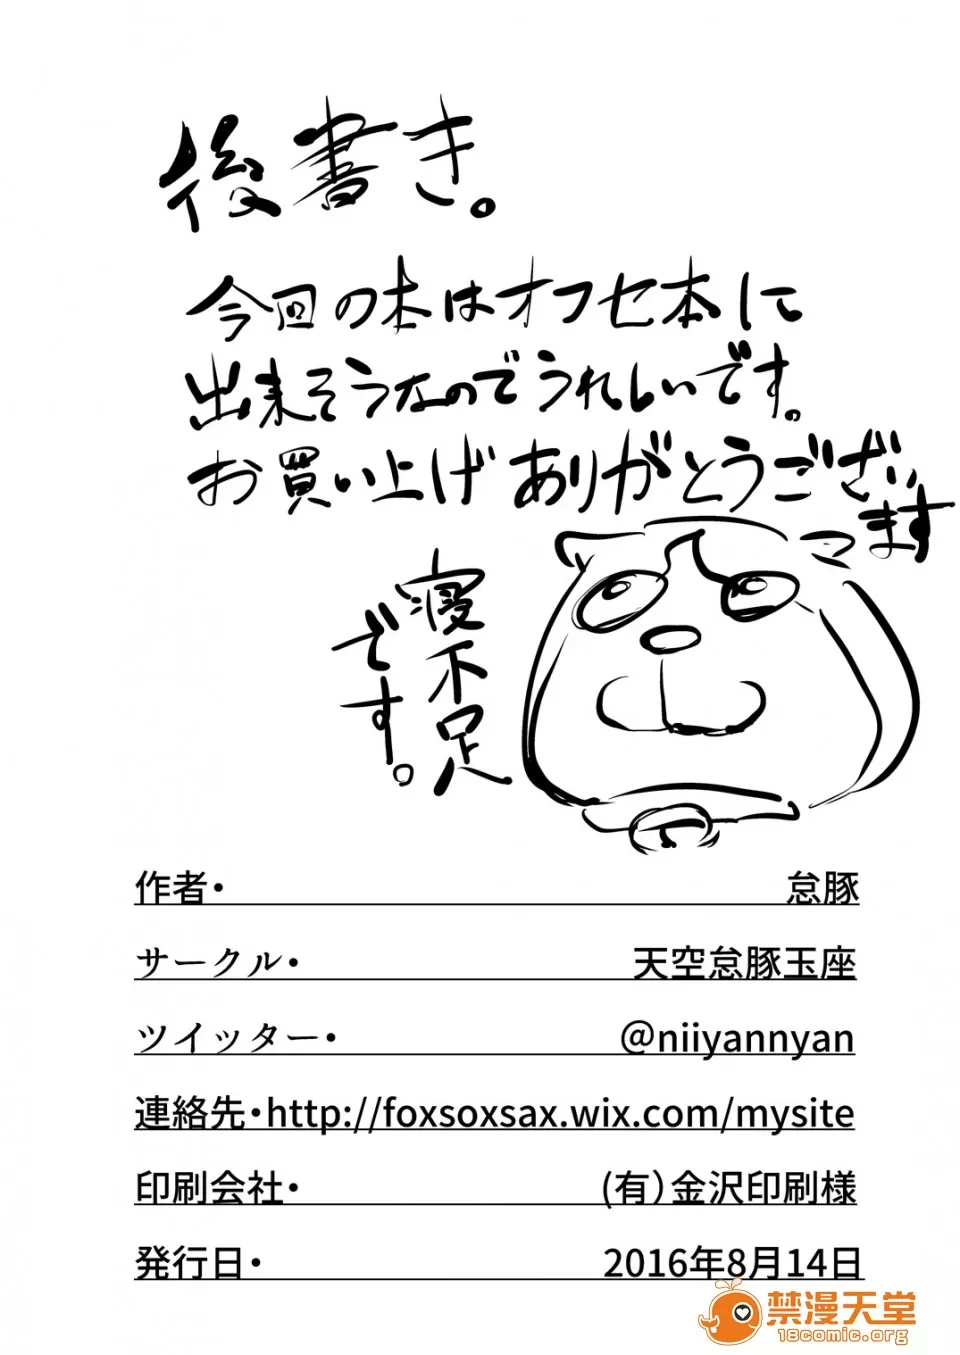 後書き。
今回の本はオフセ本して
出来そうなのでうれしいです。
お買い上げありがとうござい
ます
寝不足
です。
作者・ 怠豚
サークル・ 天空怠豚玉座
ツイッター・ @niiyannyan
連絡先・http://foxsoxsax.wix.com/mysite
印刷会社・ (有)金沢印刷様
発行日・ 2016年8月14日
禁漫天堂
18comic.org